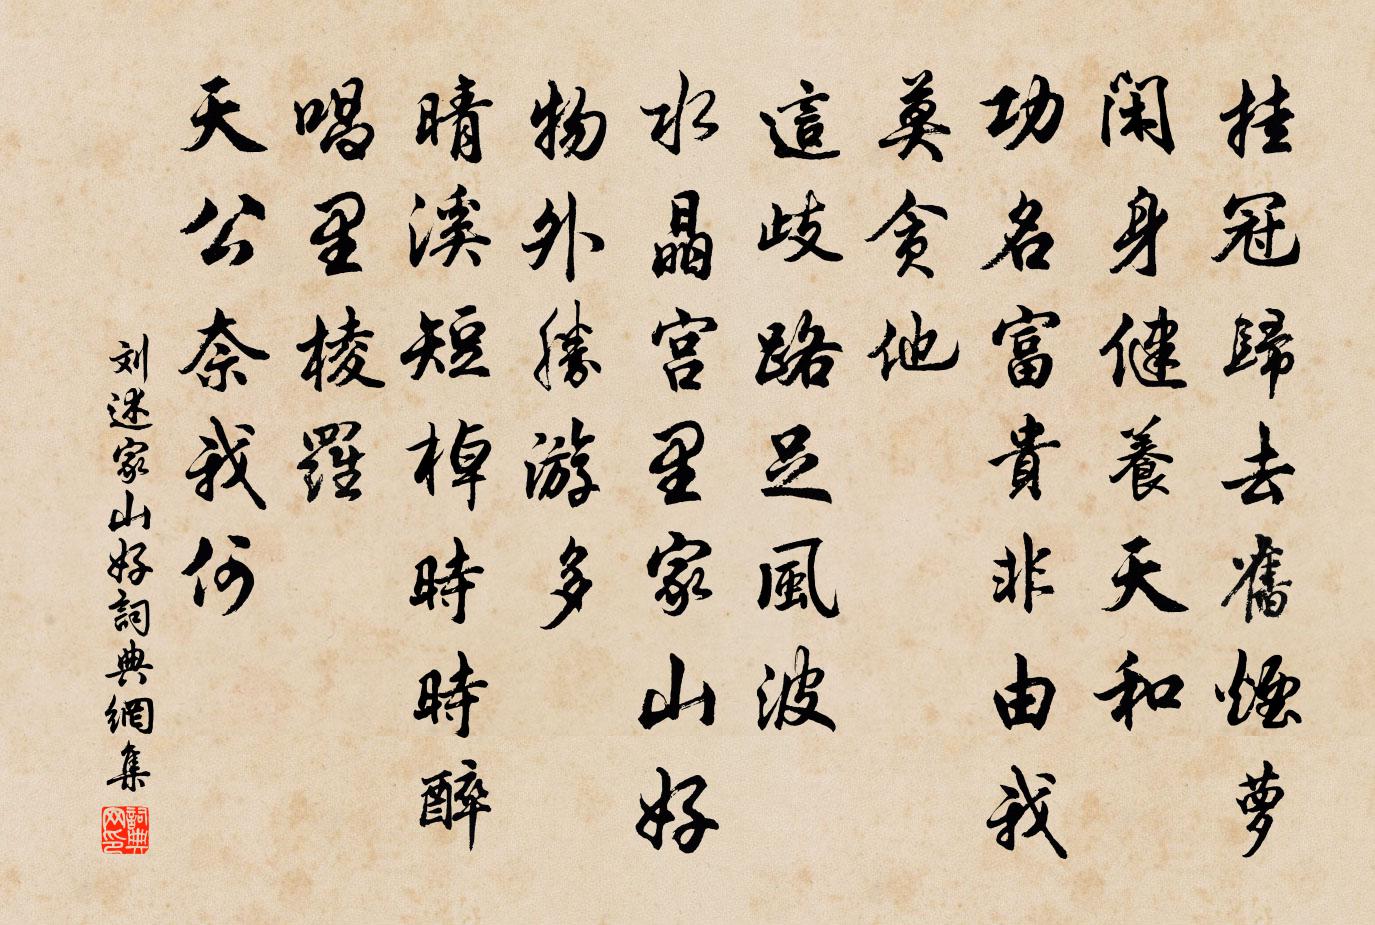 挂冠歸去舊煙蘿
閑身健養天和
功名富貴非由我
莫貪他
這歧路足風波
水晶宮里家山好
物外勝游多
晴溪短棹時時醉
唱里棱羅
天公奈我何
刘述家山好詞典網集
詞典网印